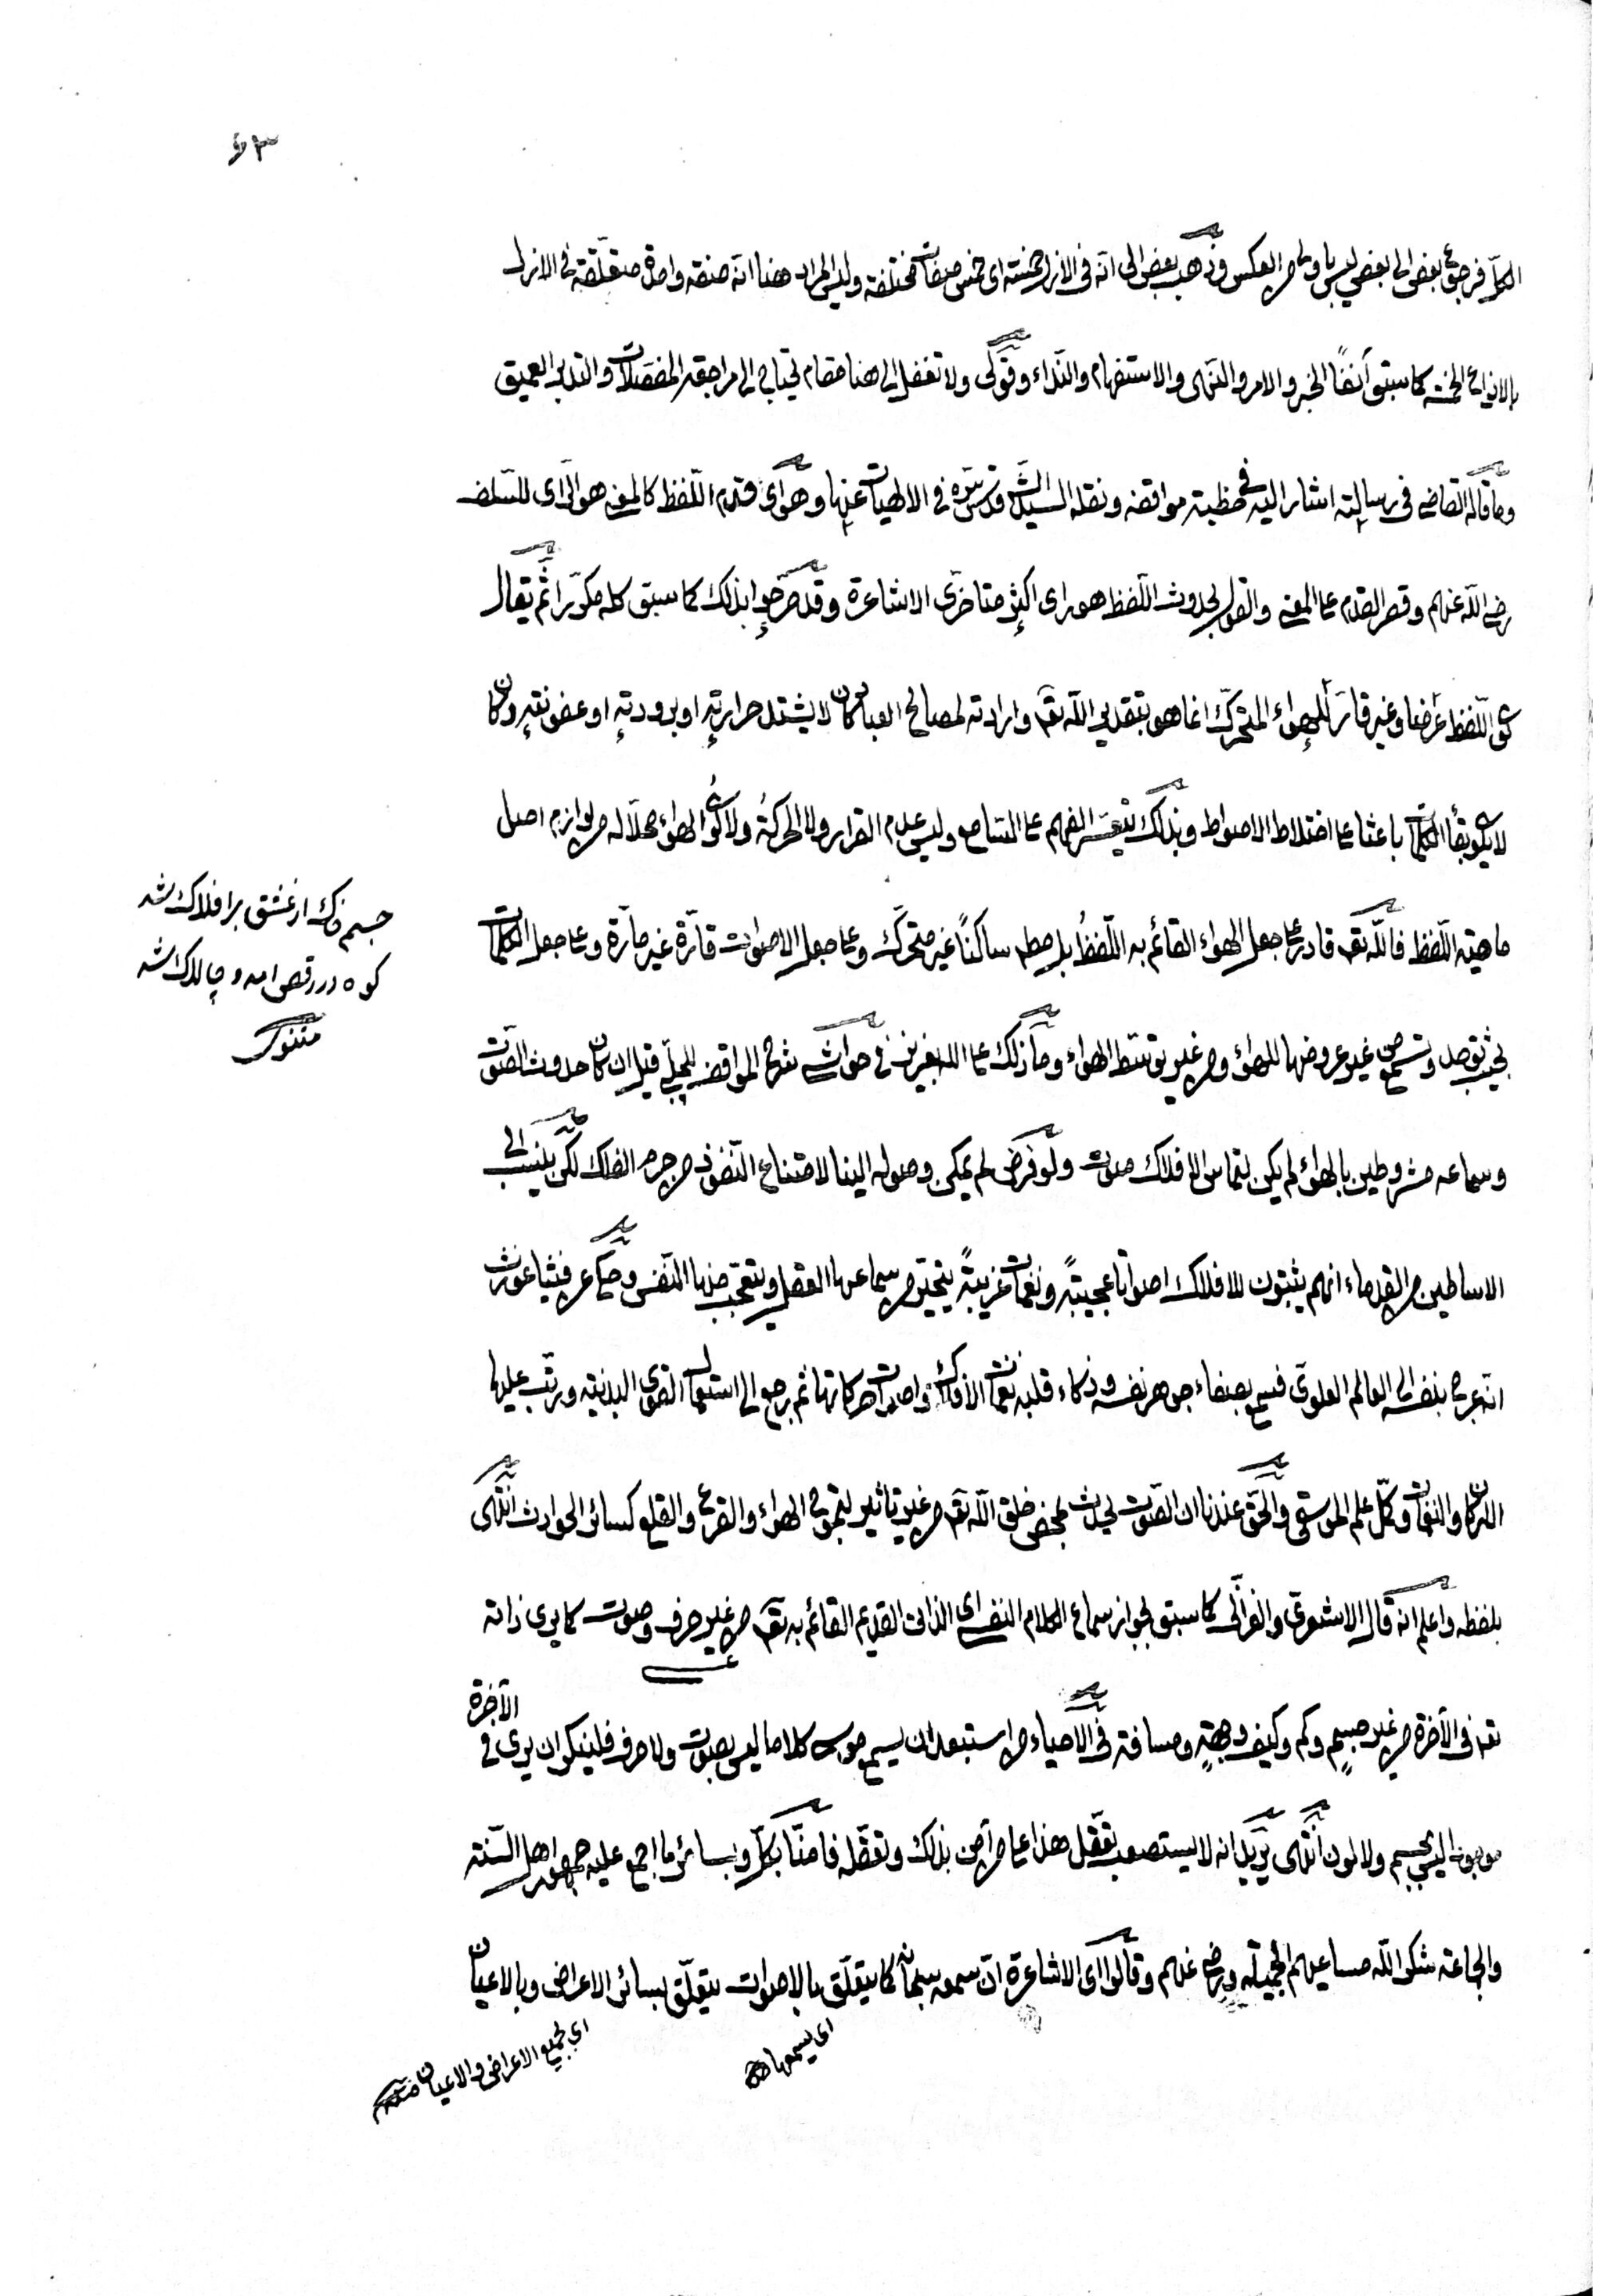 ٦٣
الكل فرجوع بعض الى بعض ليس باولى من العكس وذهب بعض الى انه فى الازل خمسة اى خمس صفات مختلفة وليس المراد هنا انه صفة واحدة متعلقة فى الازل
بالانواع الخمسة كما سبق آنفًا الخبر والامر والنهى والاستفهام والنداء وقولى ولا تغفل الى هنا مقام يحتاج الى مراجعة المفصلات والتدبر العميق
وما قاله القاضى فى رسالته اشار اليه فى خطبة مواقفه ونقله السيد السند قدس سره فى الالهيات عنها وهو اى قدم اللفظ كالمعنى هو الرأى للسلف
رضى الله عنهم وقصر القدم على المعنى والقول بحدوث اللفظ هو رأى اكثر متأخرى الاشاعرة وقد صرحوا بذلك كما سبق كله مكررا ثم يقال
كون اللفظ عرضا وغير قار للهواء المتحرك انما هو بتقدير الله تعالى وارادته لمصالح العباد كان لا يشتد حرارته او برودته او عفونته وكان
لا يكون بقاء الكلمات باعثا على اختلاط الاصوات وبذلك يتعسر الفهم على السامع وليس عدم القرار ولا الحركة ولا كون الهواء محلا له من لوازم اصل
ماهية اللفظ فالله تعالى قادر على جعل الهواء القائم به اللفظ بل ساكنًا غير متحرك وعلى جعل الاصوات قارة غير مارة وعلى جعل الكلمات
بحيث توجد وتسمع من غير عروضها للهواء ومن غير توسط الهواء وما ذلك على الله بعزيز فى حواشى شرح المواقف للچلبى قيل ان كان حدوث الصوت
وسماعه مشروطين بالهواء لم يكن لتماس الافلاك صوت ولو فرض لم يمكن وصوله الينا لامتناع النفوذ من جرم الفلك لكن ينسب الى
الاساطين من القدماء انهم يثبتون للافلاك اصواتا عجيبةً ونغمات غريبةً يتحير من سماعها العقل ويتعجب منها النفس وحكى عن فيثاغورث
انه عرج بنفسه الى العالم العلوى فسمع بصفاء جوهر نفسه وذكاء قلبه نغمات الافلاك واصوات حركاتها ثم رجع الى استعمال القوى البدنية ورتب عليها
الالحان والنغمات وكمل علم الموسيقى والحق عندنا ان الصوت يحدث بمحض خلق الله تعالى من غير تاثير لتموج الهواء والقرع والقلع كسائر الحوادث انتهى
بلفظه واعلم انه قال الاشعرى والغزالى كما سبق بجواز سماع الكلام النفسى اى الذات القديم القائم به تعالى من غير حرف وصوت كما يرى ذاته
تعالى فى الآخرة من غير جسم وكم وكيف وجهة ومسافة فى الاحياء من استبعد ان يسمع موسى كلاما ليس بصوت ولا حرف فلينكر ان يرى فى الآخرة
موجودا ليس بجسم ولا لون انتهى يريد انه لا يستصعب تعقل هذا على من آمن بذلك وتعقله فآمنا بكل وبسائر ما اجمع عليه جمهور اهل السنة
والجماعة شكر الله مساعيهم الجميلة ورضى عنهم وقالوا اى الاشاعرة ان سمعه سبحانه كما يتعلق بالاصوات يتعلق بسائر الاعراض وبالاعيان
جسم خاك از عشق بر افلاك شد
كوه در رقص امد و چالاك شد
مثنوى
اى يسمعها
اى بجميع الاعراض والاعيان